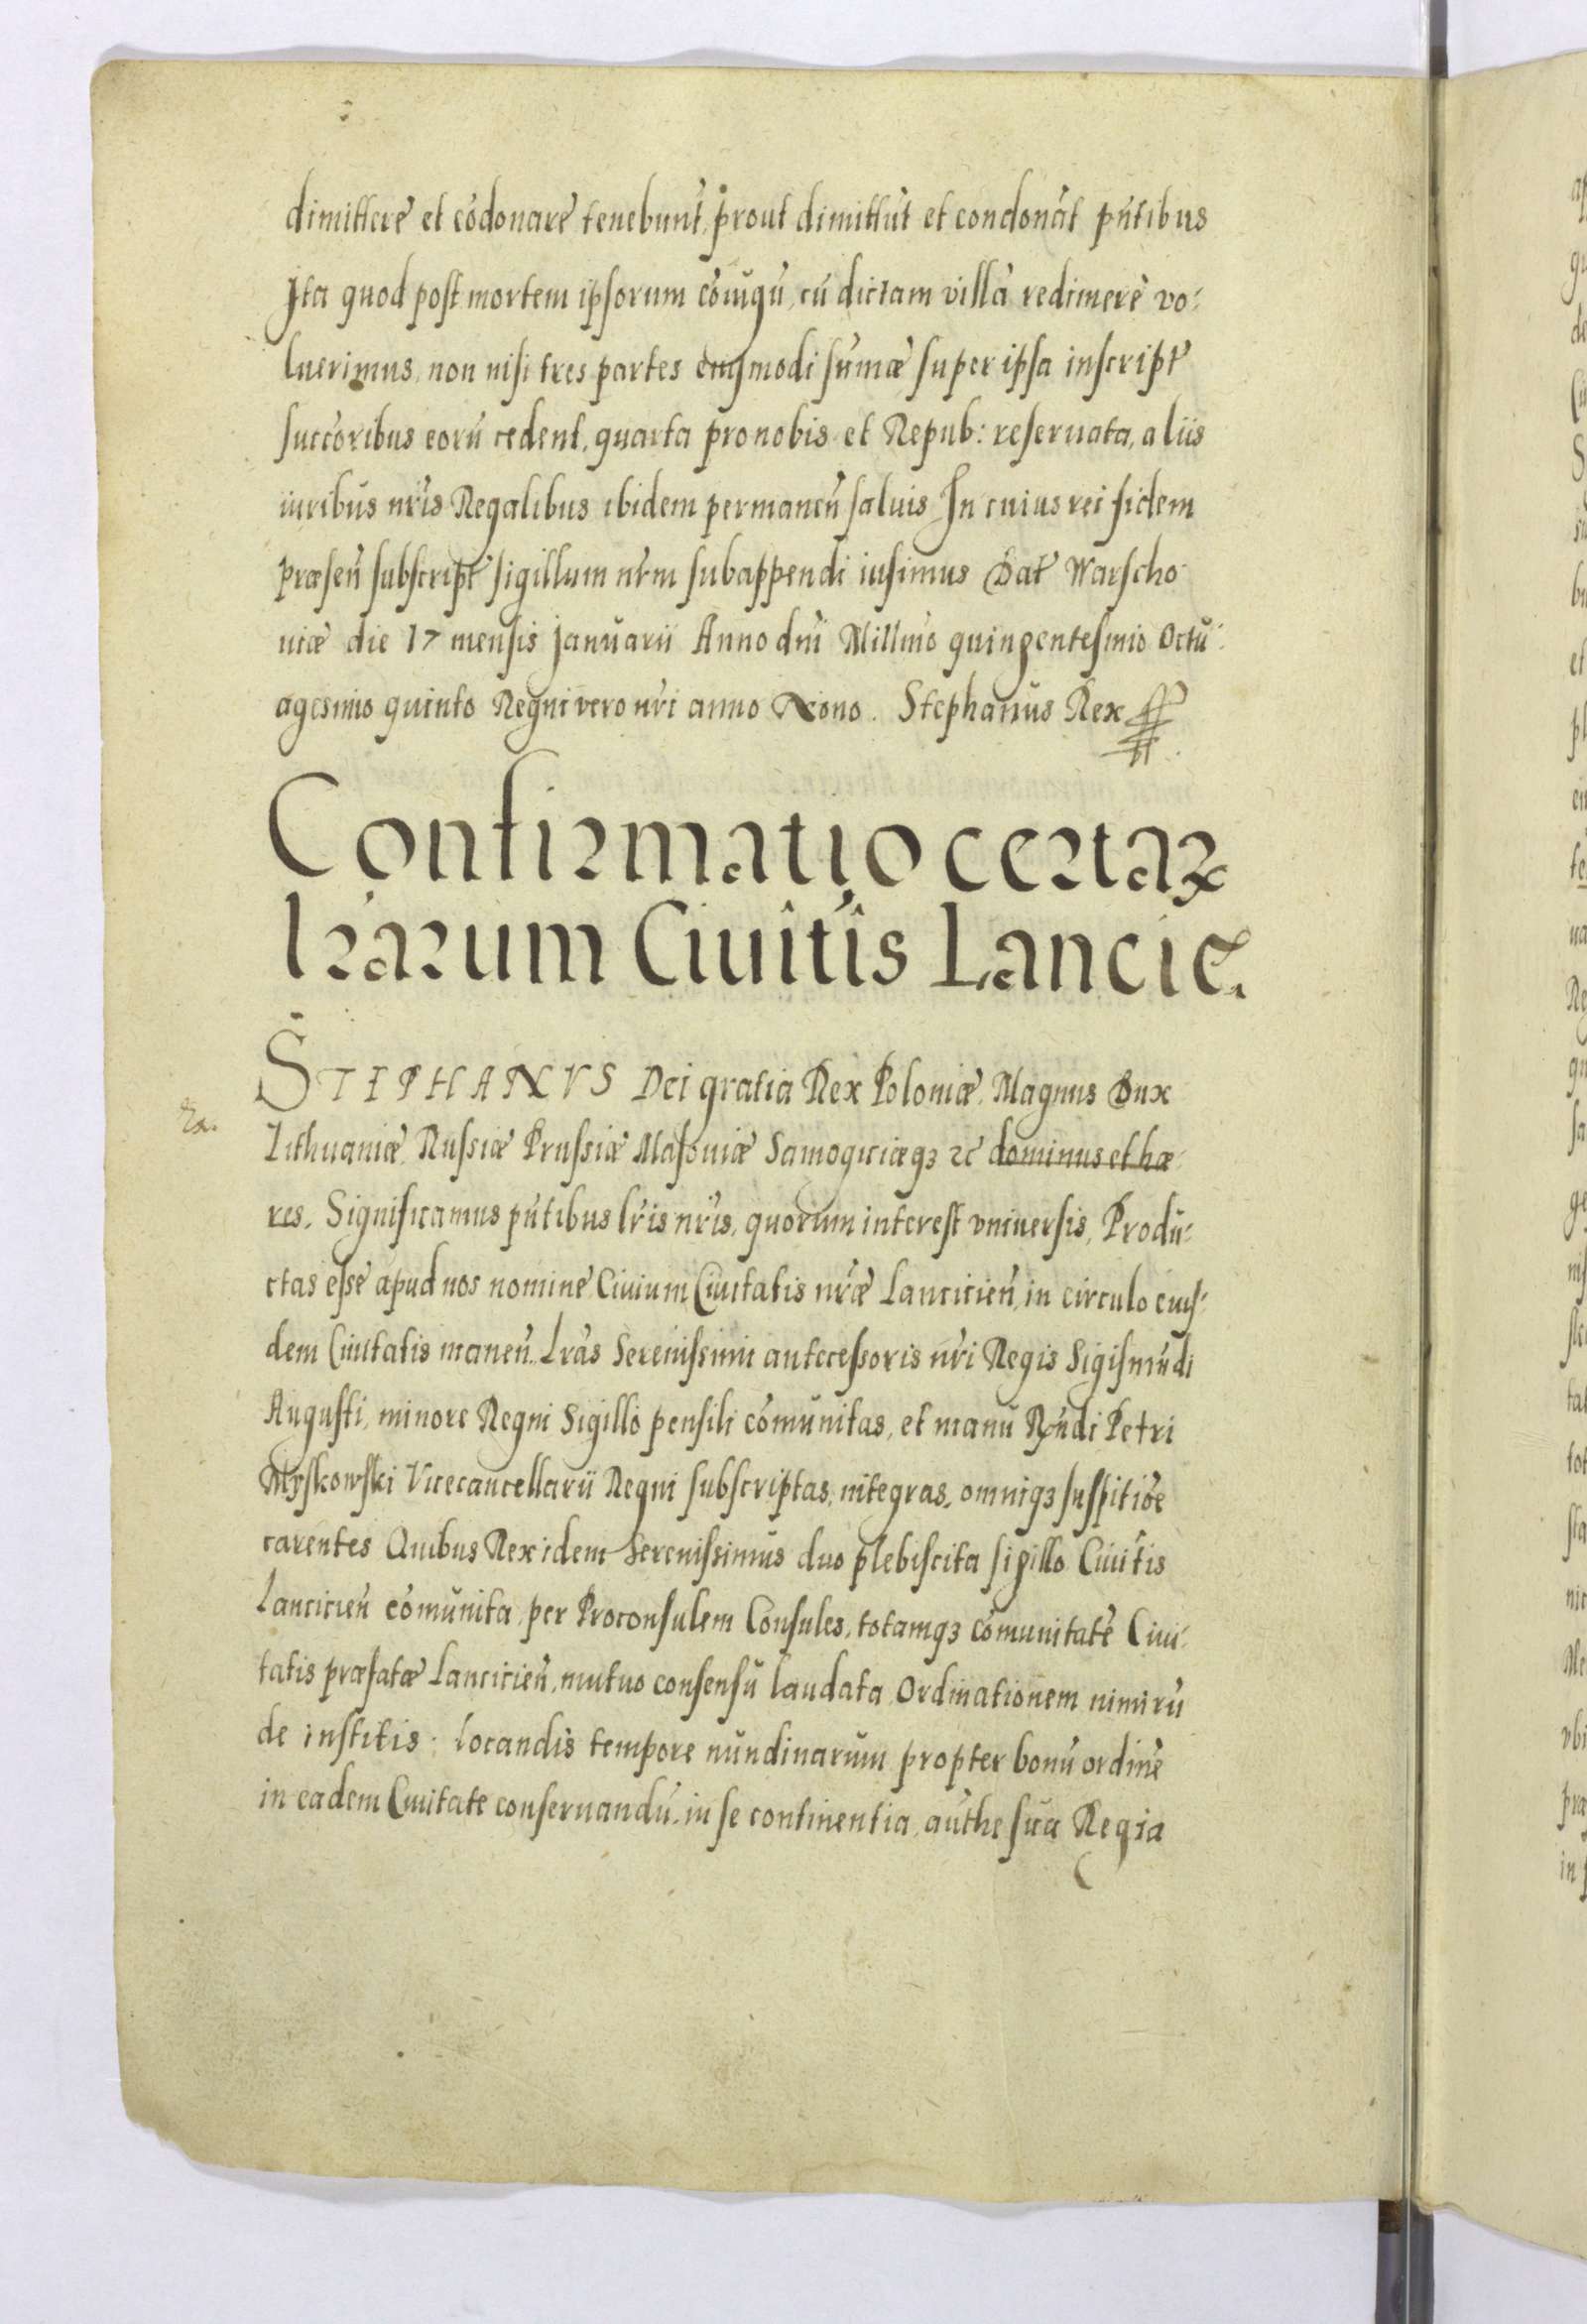 dimittere et cōdonare tenebunt̄, prout dimittūt et condonāt pn̄tibus
Ita quod post mortem ipsorum cōiugū, cū dictam villā redimere vo-
luerimus, non nisi tres partes eiusmodi sum̄æ super ipsa inscript
succōribus eorū cedent, quarta pro nobis et Repub: reseruata, aliis
iuribus nr̄is Regalibus ibidem permanen̄ saluis In cuius rei fidem
præsen̄ subscript sigillum nr̄m subappendi iusimus Dat Warscho-
uiæ die 17 mensis Januarii Anno dn̄i Millmo quingentesimo Octu-
agesimo quinto Regni vero nr̄i anno Nono. Stephanus Rex
Confirmatio certaꝝ
lrārum Ciuit̄is Lancic̄.
STEPHANVS Dei gratia Rex Poloniæ, Magnus Dux
Lithuaniæ, Russiæ Prussiæ Masouiæ Samogitiæqȝ ꝛc dominus et hæ-
res. Significamus pn̄tibus lr̄is nr̄is, quorum interest vniuersis, Produ-
ctas esse apud nos nomine Ciuium Ciuitatis nr̄æ Lancicien̄, in circulo eius-
dem Ciuitatis manen̄. Lrās Serenissimi antecessoris nr̄i Regis Sigismūdi
Augusti, minore Regni Sigillo pensili cōmunitas, et manu Rn̄di Petri
Myskowski Vicecancellarii Regni subscriptas, integras, omniqȝ suspitiōe
carentes Quibus Rex idem Serenissimus duo plebiscita sigillo Ciuit̄is
Lancicien̄ cōmunita, per Proconsulem Consules, totamqȝ cōmunitatē Ciui-
tatis præfatæ Lancicien̄, mutuo consensu laudata Ordinationem nimirū
de institis locandis tempore nundinarum propter bonū ordinē
in eadem Ciuitate conseruandū, in se continentia, authe sua Regia